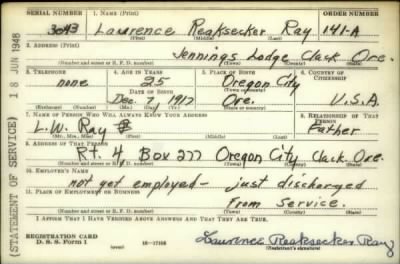 SERIAL NUMBER 1. NAME (Print) ORDER NUMBER
3043 Lawrence Reaksecker Ray 141-A
(First) (Middle) (Last)
2. ADDRESS (Print)
Jennings Lodge Clack Ore.
(Number and street or R. F. D. number) (Town) (County) (State)
3. TELEPHONE 4. AGE IN YEARS 5. PLACE OF BIRTH 6. COUNTRY OF CITIZENSHIP
none 25 Oregon City
DATE OF BIRTH (Town or county)
Dec. 7, 1917 Ore. U.S.A
(Exchange) (Number) (Mo.) (Day) (Yr.) (State or country)
7. NAME OF PERSON WHO WILL ALWAYS KNOW YOUR ADDRESS 8. RELATIONSHIP OF THAT PERSON
L.W. Ray Father
(Mr., Mrs., Miss) (First) (Middle) (Last)
9. ADDRESS OF THAT PERSON
Rt 4 Box 277 Oregon City Clack Ore.
(Number and street or R. F. D. number) (Town) (County) (State)
10. EMPLOYER'S NAME
not yet employed - just discharged
11. PLACE OF EMPLOYMENT OR BUSINESS
From service.
(Number and street or R. F. D. number) (Town) (County) (State)
I AFFIRM THAT I HAVE VERIFIED ABOVE ANSWERS AND THAT THEY ARE TRUE.
REGISTRATION CARD
D. S. S. Form 1 16-17105 Lawrence Reaksecker Ray
(Registrant's signature)
(STATEMENT OF SERVICE) 18 JUN 1948